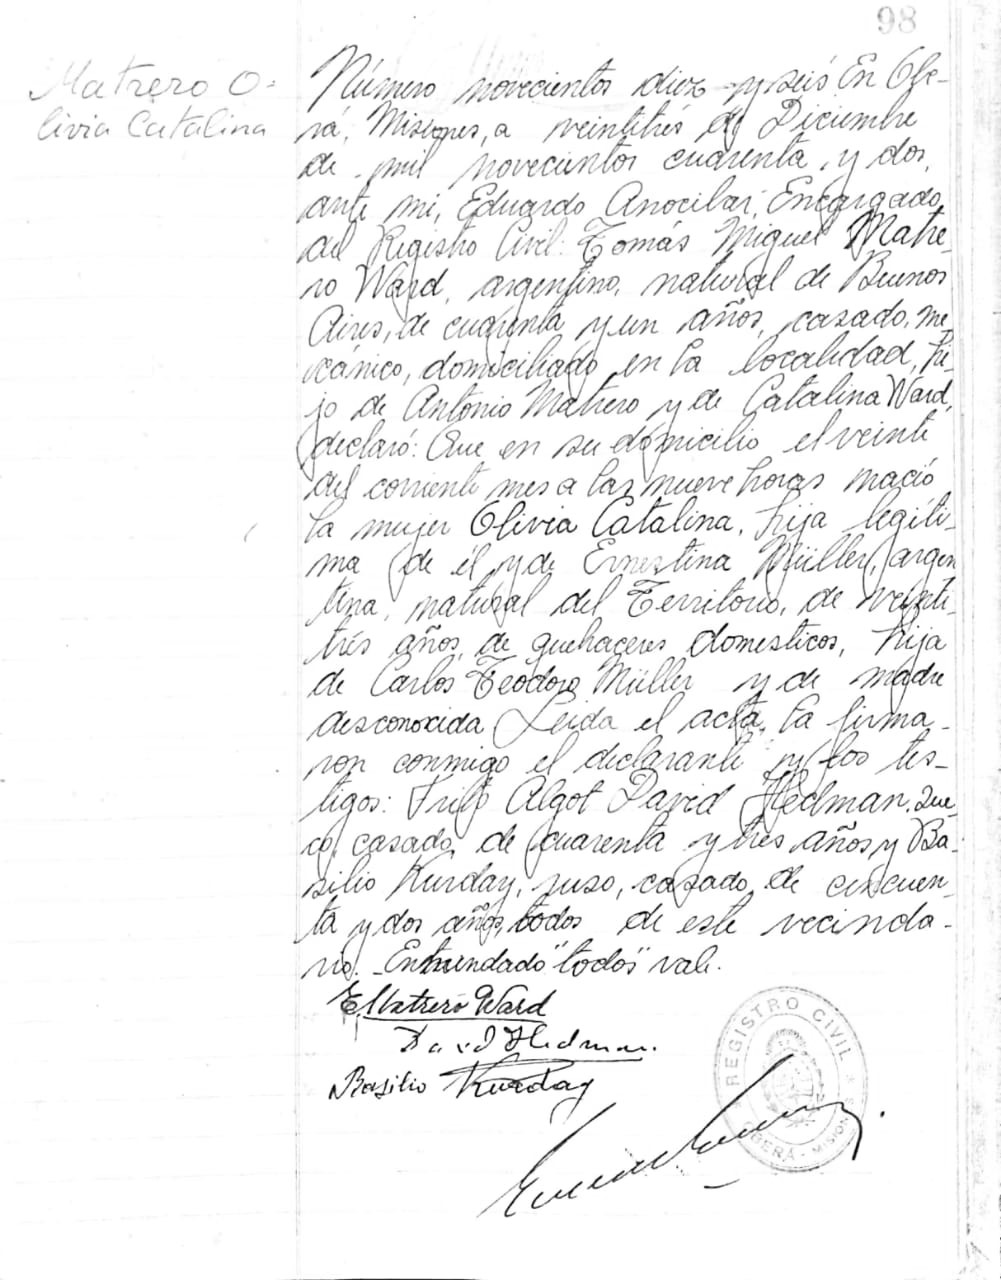 98
Matrero O-
livia Catalina
Número novecientos diez y seis En Obe-
rá, Misiones, a veintitrés de Diciembre
de mil novecientos cuarenta y dos,
ante mi, Eduardo Anocibar, Encargado
del Registro Civil: Tomás Miguel Matre-
ro Ward, argentino, natural de Buenos
Aires, de cuarenta y un años, casado, me-
cánico, domiciliado en la localidad, hi-
jo de Antonio Matrero y de Catalina Ward,
declaró: Que en su domicilio el veinte
del corriente mes a las nueve horas nació
la mujer Olivia Catalina, hija legíti-
ma de él y de Ernestina Müller, argen
tina, natural del Territorio, de veinti-
trés años, de quehaceres domesticos, hija
de Carlos Teodoro Müller y de madre
desconocida Leida el acta, la firma-
ron conmigo el declarante y los tes-
tigos: Algot David Hedman, sue-
co, casado, de cuarenta y tres años y Ba-
silio Kurday, ruso, casado, de cincuen-
ta y dos años, todos de este vecinda-
rio. Enmendado "todos" vale.
Matrero Ward
David Hedman.
Basilio Kurday
REGISTRO CIVIL
OBERÁ - MISIONES